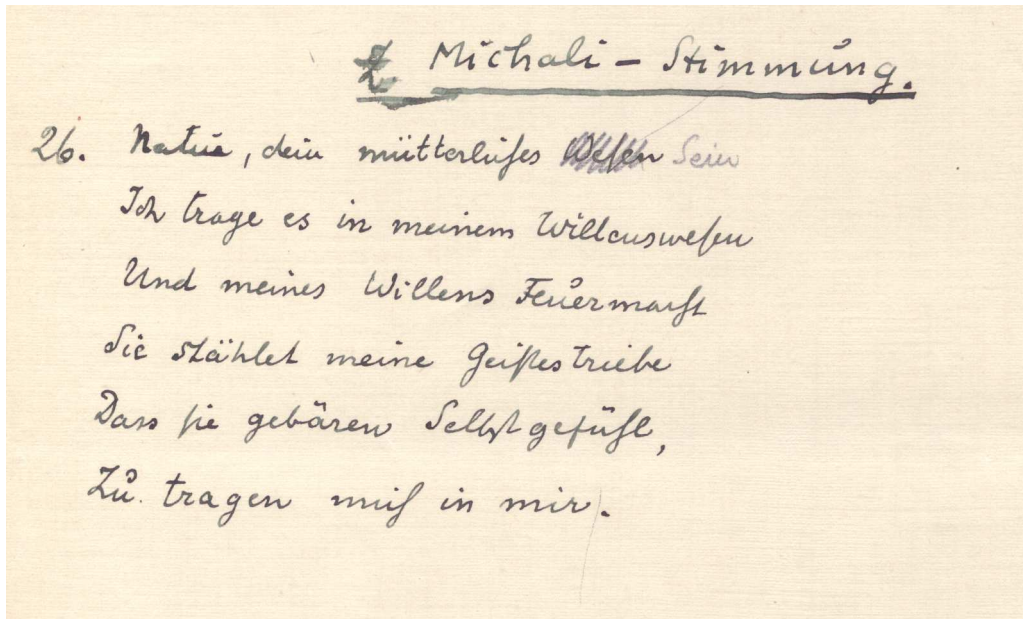 Z Michali – Stimmung.
26. Natur, dein mütterliches Wesen Sein
Ich trage es in meinem Willenswesen
Und meines Willens Feuermacht
Sie stählet meine Geistestriebe
Dass sie gebären Selbstgefühl,
Zu tragen mich in mir.